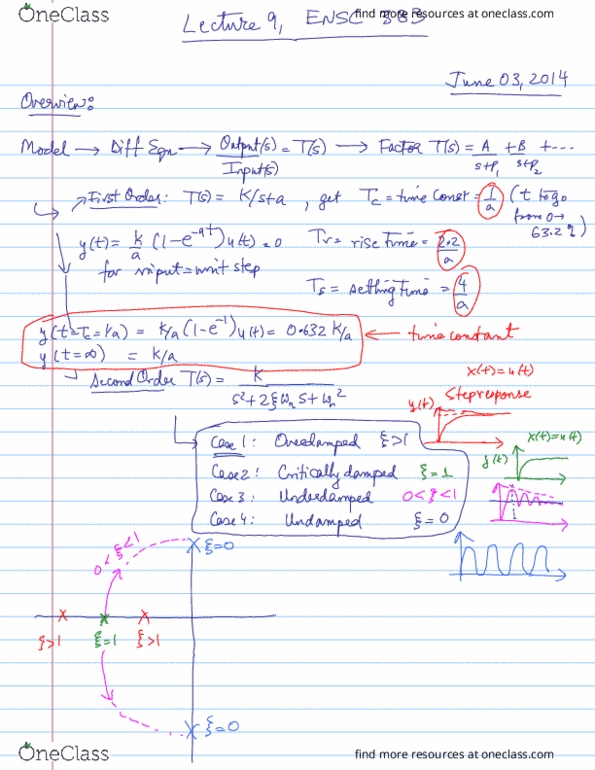 OneClass
find more resources at oneclass.com
Lecture 9, ENSC 383
June 03, 2014
Overview:
Model → Diff Eqn → Output(s)/Input(s) = T(s) → Factor T(s) = A/s+p₁ + B/s+p₂ + ...
First Order: T(s) = K/s+a , get Tc = time const = 1/a (t to go from 0→ 63.2%)
y(t) = k/a (1-e^-at) u(t) = 0
Tr = rise time = 2.2/a
for input = unit step
Ts = settling time = 4/a
y(t=Tc=1/a) = k/a (1-e^-1) u(t) = 0.632 k/a ← time constant
y(t=∞) = k/a
x(t) = u(t)
Second Order T(s) = K / s²+2ξωₙs+ωₙ²
y(t) Step response
Case 1: Overdamped ξ>1
x(t)=u(t)
y(t)
Case 2: Critically damped ξ=1
Case 3: Underdamped 0<ξ<1
Case 4: Undamped ξ=0
0<ξ<1
ξ=0
ξ>1 ξ=1 ξ>1
ξ=0
OneClass
find more resources at oneclass.com